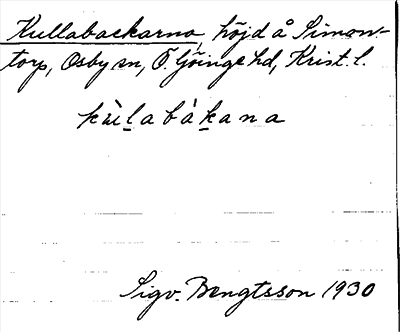 Kullabackarna, höjd å Simon-
torp, Osby sn, Ö. Göinge hd, Krist. l.
kùl̲abàk̲ana
Sigv. Bengtsson 1930